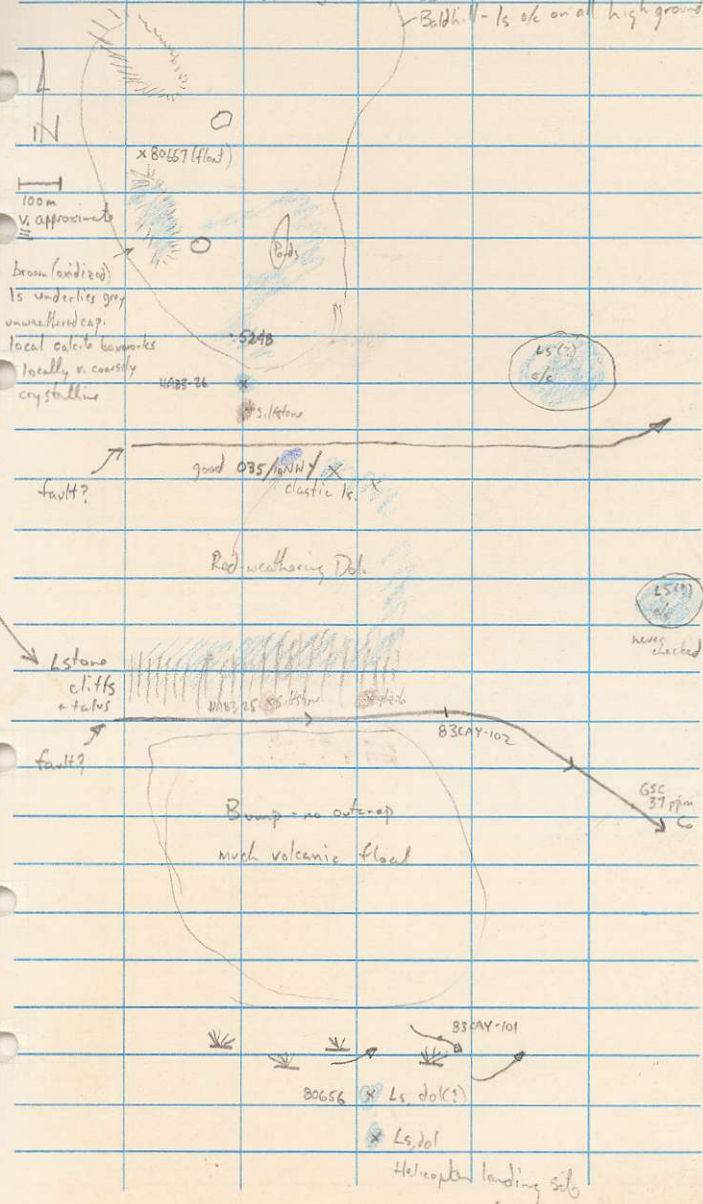 Baldhill - ls o/c on all high ground
N
x 80657 (float)
100m
v. approximate
Ponds
Brown (oxidized)
ls underlies grey
unweathered cap.
local calcite boxworks
locally v. coarsely
crystalline
5248
HA83-26
siltstone
LS(?)
o/c
fault?
good 035/10NW
clastic ls.
Red-weathering Dol.
LS(?)
o/c
never checked
Lstone
cliffs
+ talus
HA83-25 x siltstone
fault?
83CAY-102
GSC
37 ppm
Co
Bump - no outcrop
much volcanic float
83CAY-101
80656 x Ls, dol(?)
x Ls, dol
Helicopter landing site